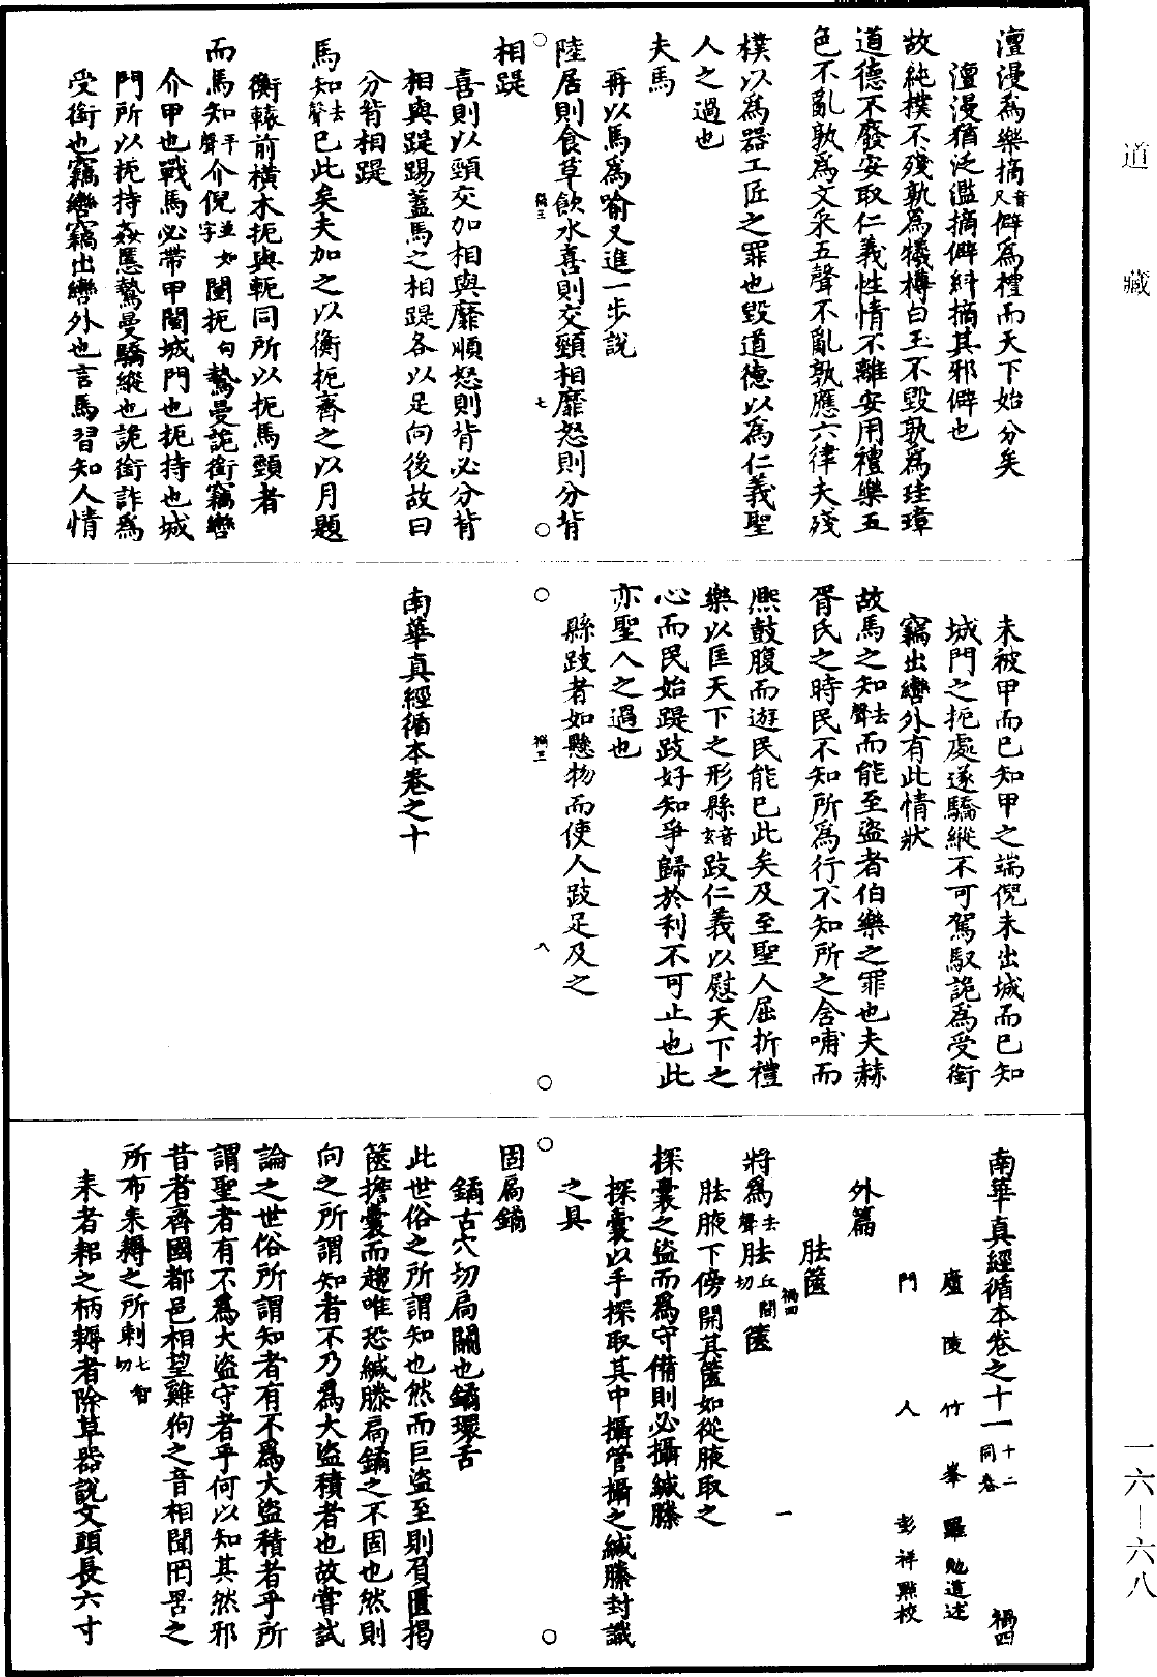 道藏
澶漫爲樂摘音尺僻爲禮而天下始分矣
澶漫猶泛濫摘僻糾摘其邪僻也
故純撲不殘孰爲犧樽白玉不毀孰爲珪璋
道德不廢安取仁義性情不離安用禮樂五
色不亂孰爲文采五聲不亂孰應六律夫殘
樸以爲器工匠之罪也毀道德以爲仁義聖
人之過也
夫馬
再以馬爲喻又進一步說
陸居則食草飲水喜則交頸相靡怒則分背
禍三 七
相踶
喜則以頸交加相與靡順怒則背必分背
相與踶踢蓋馬之相踶各以足向後故曰
分背相踶
馬知去聲已此矣夫加之以衡扼齊之以月題
衡轅前橫木扼與軛同所以扼馬頸者
而馬知平聲介倪並如字闉扼句鷙曼詭銜竊轡
介甲也戰馬必帶甲闉城門也扼持也城
門所以扼持姦慝鷙曼驕縱也詭銜詐爲
受銜也竊轡竊出轡外也言馬習知人情
未被甲而已知甲之端倪未出城而已知
城門之扼處遂驕縱不可駕馭詭爲受銜
竊出轡外有此情狀
故馬之知去聲而能至盜者伯樂之罪也夫赫
胥氏之時民不知所爲行不知所之含哺而
熙鼓腹而遊民能已此矣及至聖人屈折禮
樂以匡天下之形縣音玄跂仁義以慰天下之
心而民始踶跂好知爭歸於利不可止也此
亦聖人之過也
縣跂者如懸物而使人跂足及之
禍三 八
南華真經循本卷之十
南華真經循本卷之十一 十二同卷 禍四
廬陵竹峯羅勉道述
門人彭祥點校
外篇
胠篋
禍四 一
將爲去聲胠丘間切篋
胠腋下傍開其篋如從腋取之
探囊之盜而爲守備則必攝緘縢
探囊以手探取其中攝管攝之緘縢封識
之具
固扃鐍
鐍古穴切扃關也鐍環舌
此世俗之所謂知也然而巨盜至則負匱揭
篋擔囊而趨唯恐緘縢扃鐍之不固也然則
向之所謂知者不乃爲大盜積者也故嘗試
論之世俗所謂知者有不爲大盜積者乎所
謂聖者有不爲大盜守者乎何以知其然邪
昔者齊國都邑相望雞狗之音相聞罔罟之
所布耒耨之所刺七智切
耒者耜之柄耨者除草器說文頭長六寸
一六—六八